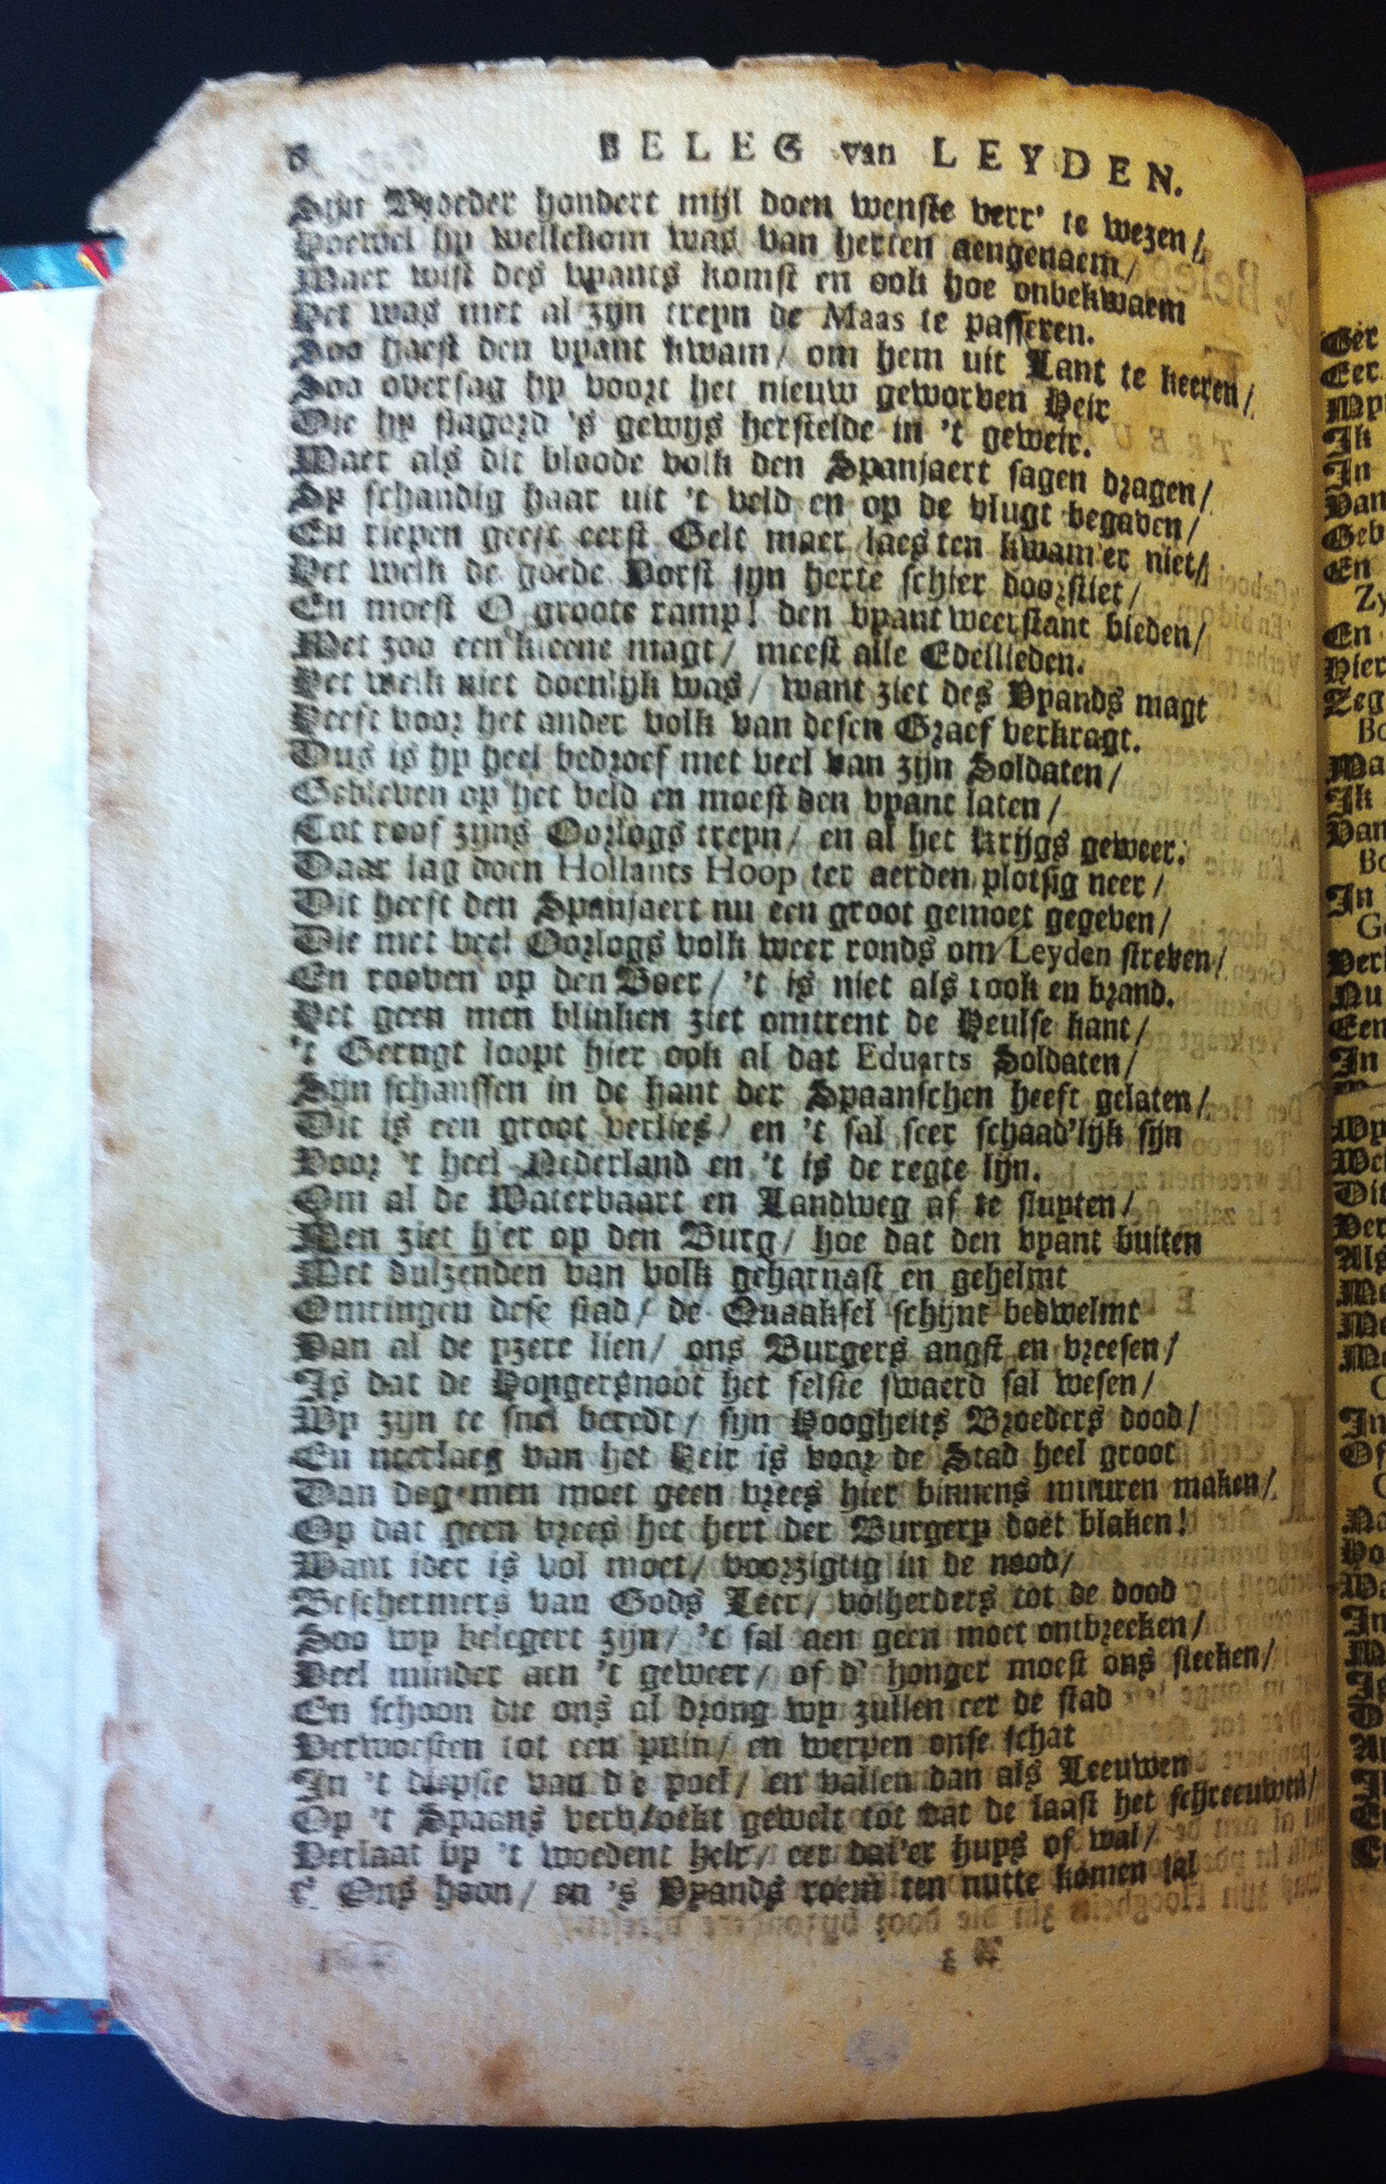 6 BELEG van LEYDEN.
Sijn Broeder hondert mijl doen wenste verr' te wezen/
Hoewel hy wellekom was van herten aengenaem/
Maer wist des vyants komst en ook hoe onbekwaem
Het was met al zijn treyn de Maas te passeren.
Soo haest den vyant kwam/ om hem uit Lant te keeren/
Soo oversag hy voort het nieuw geworven Heir
Die hy slagord 's gewijs herstelde in 't geweir.
Maer als dit bloode volk den Spanjaert sagen dragen/
Sy schandig haar uit 't veld en op de vlugt begaven/
En riepen geeft eerst Gelt maer laes ten kwam'er niet/
Het welk de goede Vorst sijn herte schier doorstiet/
En moest O groote ramp! den vyant weerstant bieden/
Met zoo een kleene magt/ meest alle Edellieden.
Het welk niet doenlijk was/ want ziet des Vyands magt
Heeft voor het ander volk van desen Graef verkragt.
Dus is hy heel bedroef met veel van zijn Soldaten/
Gebleven op het veld en moest den vyant laten/
Tot roof zijns Oorlogs treyn/ en al het krijgs geweer.
Daar lag doen Hollants Hoop ter aerden plotsig neer/
Dit heeft den Spanjaert nu een groot gemoet gegeven/
Die met veel Oorlogs volk weer ronds om Leyden streven/
En rooven op den Boer/ 't is niet als rook en brand.
Het geen men blinken ziet omtrent de Heulse kant/
't Gerugt loopt hier ook al dat Eduarts Soldaten/
Sijn schanssen in de hant der Spaanschen heeft gelaten/
Dit is een groot verlies/ en 't sal seer schaad'lijk sijn
Voor 't heel Nederland en 't is de regte lijn.
Om al de Watervaart en Landweg af te sluyten/
Men ziet hier op den Burg/ hoe dat den vyant buiten
Met duizenden van volk geharnast en gehelmt
Omringen dese stad/ de Quaaksel schijnt bedwelmt
Van al de yzere lien/ ons Burgers angst en vreesen/
Is dat de Hongersnoot het felste swaerd sal wesen/
Wy zijn te snel beredt/ sijn Hoogheits Broeders dood/
En neerlaeg van het Heir is voor de Stad heel groot
Dan dog men moet geen vrees hier binnens muuren maken/
Op dat geen vrees het hert der Burgery doet blaken!
Want ider is vol moet/ voorzigtig in de nood/
Beschermers van Gods Leer/ volherders tot de dood
Soo wy belegert zijn/ 't sal aen geen moet ontbreeken/
Veel minder aen 't geweer/ of d' honger moest ons steeken/
En schoon die ons al drong wy zullen eer de stad
Verwoesten tot een puin/ en werpen onse schat
In 't diepste van de poel/ en vallen dan als Leeuwen
Op 't Spaans vervloekt gewelt tot dat de laast het schreeuwen/
Verlaat by 't woedent heir/ eer dat'er huys of wal/
t' Ons hoon/ en 's Vyands roem ten nutte komen sal